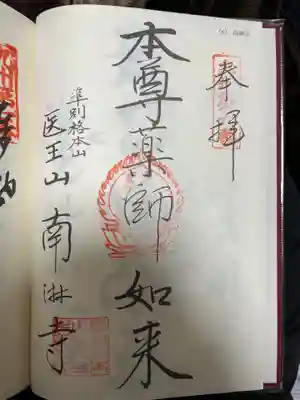 奉拝
本尊薬師如来
準別格本山
医王山南淋寺